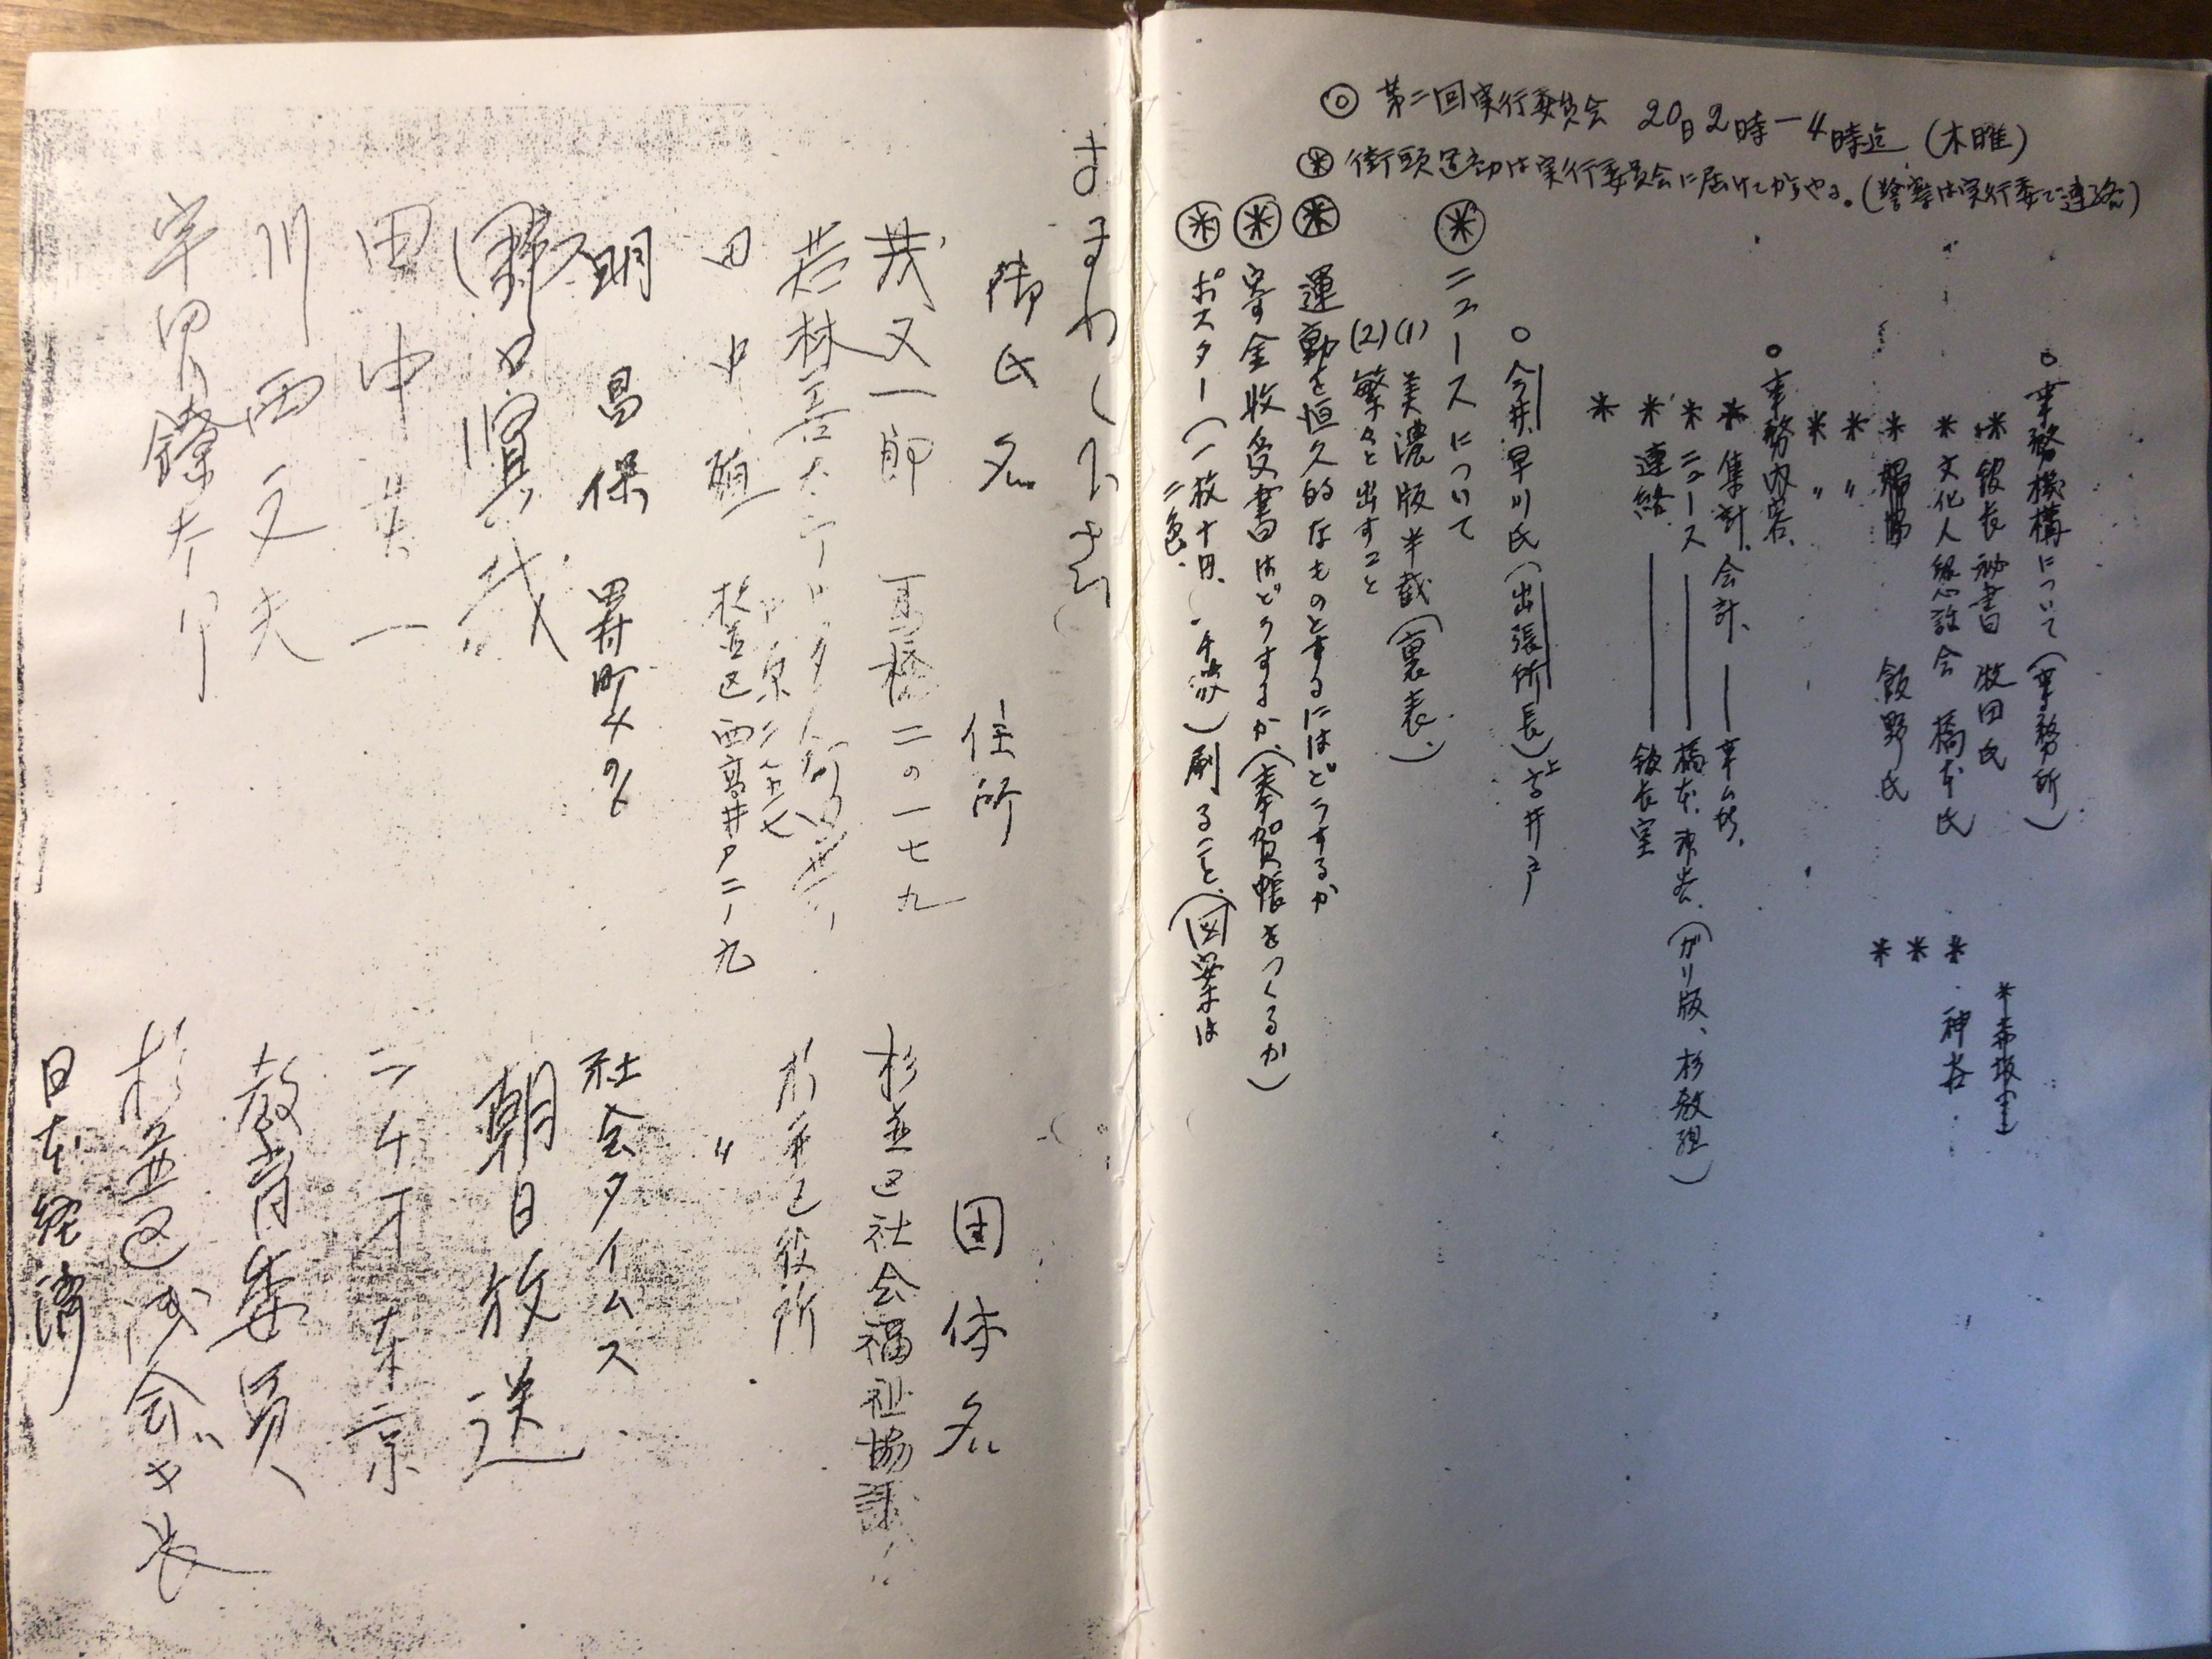 ◎ 第二回実行委員会 20日2時ー4時迄 (木曜)
⊛ 街頭運動は実行委員会に届けてからやる。(警察は実行委で連絡)
○ 事務機構について(事務所)
* 館長秘書 牧田氏
* 赤坂
* 文化人懇談会 橋本氏
* 神谷
* 飯野氏
*
* 〃
*
* 〃
○ 事務内容、
* 集計、会計、
* ニュース 橋本、
(ガリ版、杉教組)
* 連絡 館長室
*
○ 今井、早川氏(出張所長) 上高井戸
⊛ ニュースについて
(1) 美濃版半截(裏表、)
(2) 繁々と出すこと
⊛ 運動を恒久的なものとするにはどうするか
⊛ 寄金收受書はどうするか、(奉賀帳をつくるか)
⊛ ポスター(一枚十円、千枚)刷ること、(図案は
二色、
まわして下さい
御氏名 住所 団体名
茂又一郎 高橋二の一七九 杉並区社会福祉協議
若林 杉並区役所
田中 杉並区西高井戸二ノ九 〃
明 昌保 田村町4の6 社会タイムス
野口 朝日放送
田中 一 東京
川西文夫 教育委員
宇 杉並区 会
日本経済